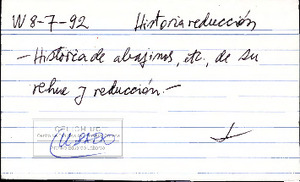 W 8-7-92 Historia reducción
- Historia de abajinos, etc., de su
rehue y reducción.-